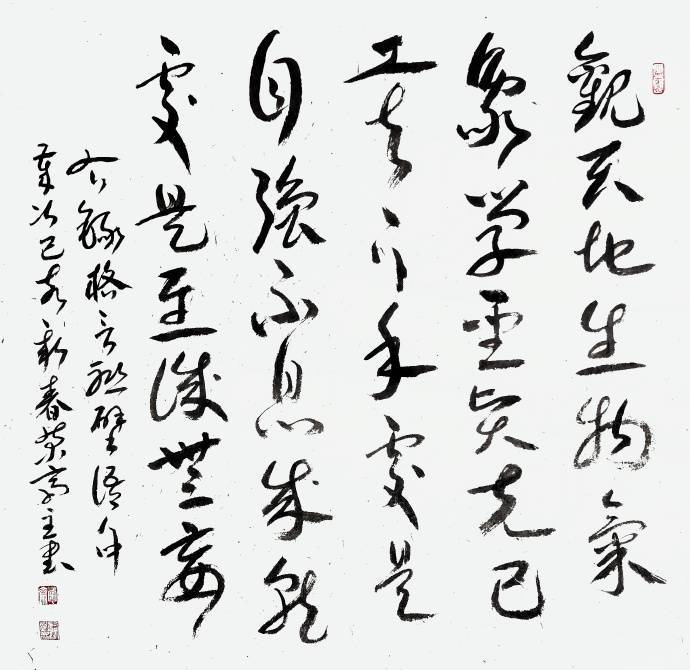 觀天地生物氣
象學聖賢克己
工夫下手處是
自強不息成就
處是至誠無妄
右錄格言聯璧語句
歲次己亥新春榮高主書